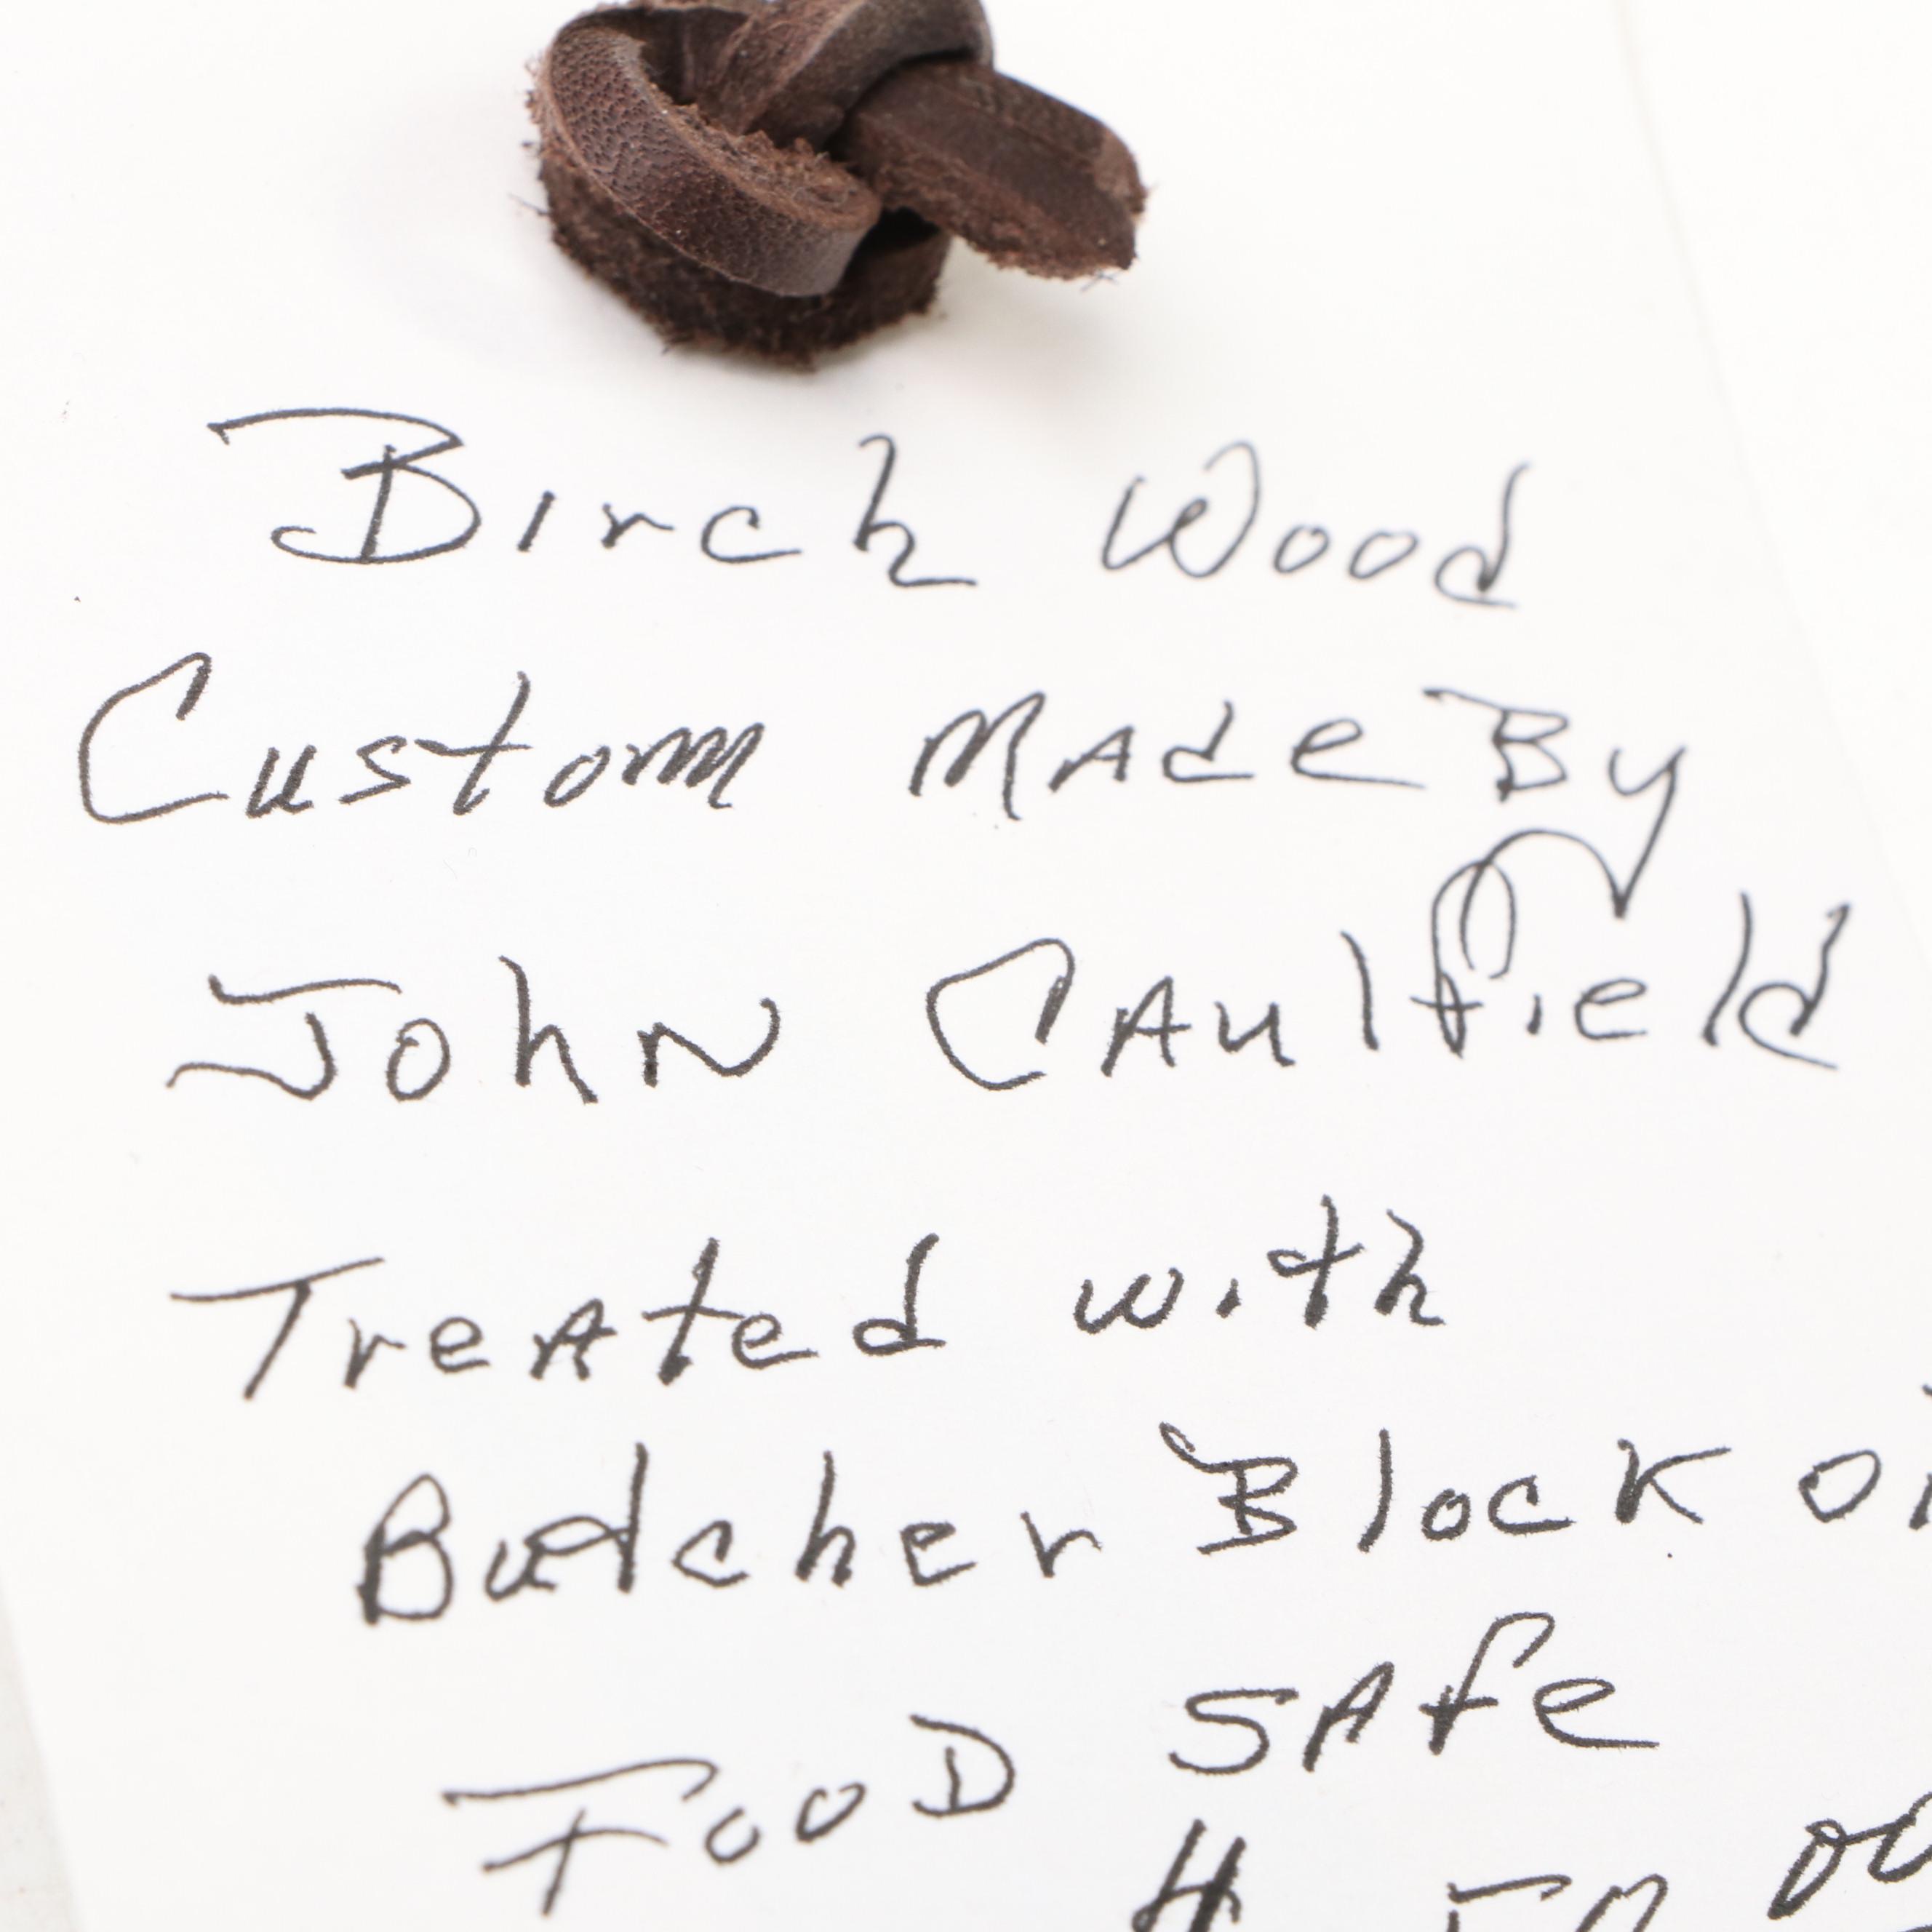 Birch Wood
Custom MAde By
John CAulfield
TreAted with
Butcher Block
FooD SAfe